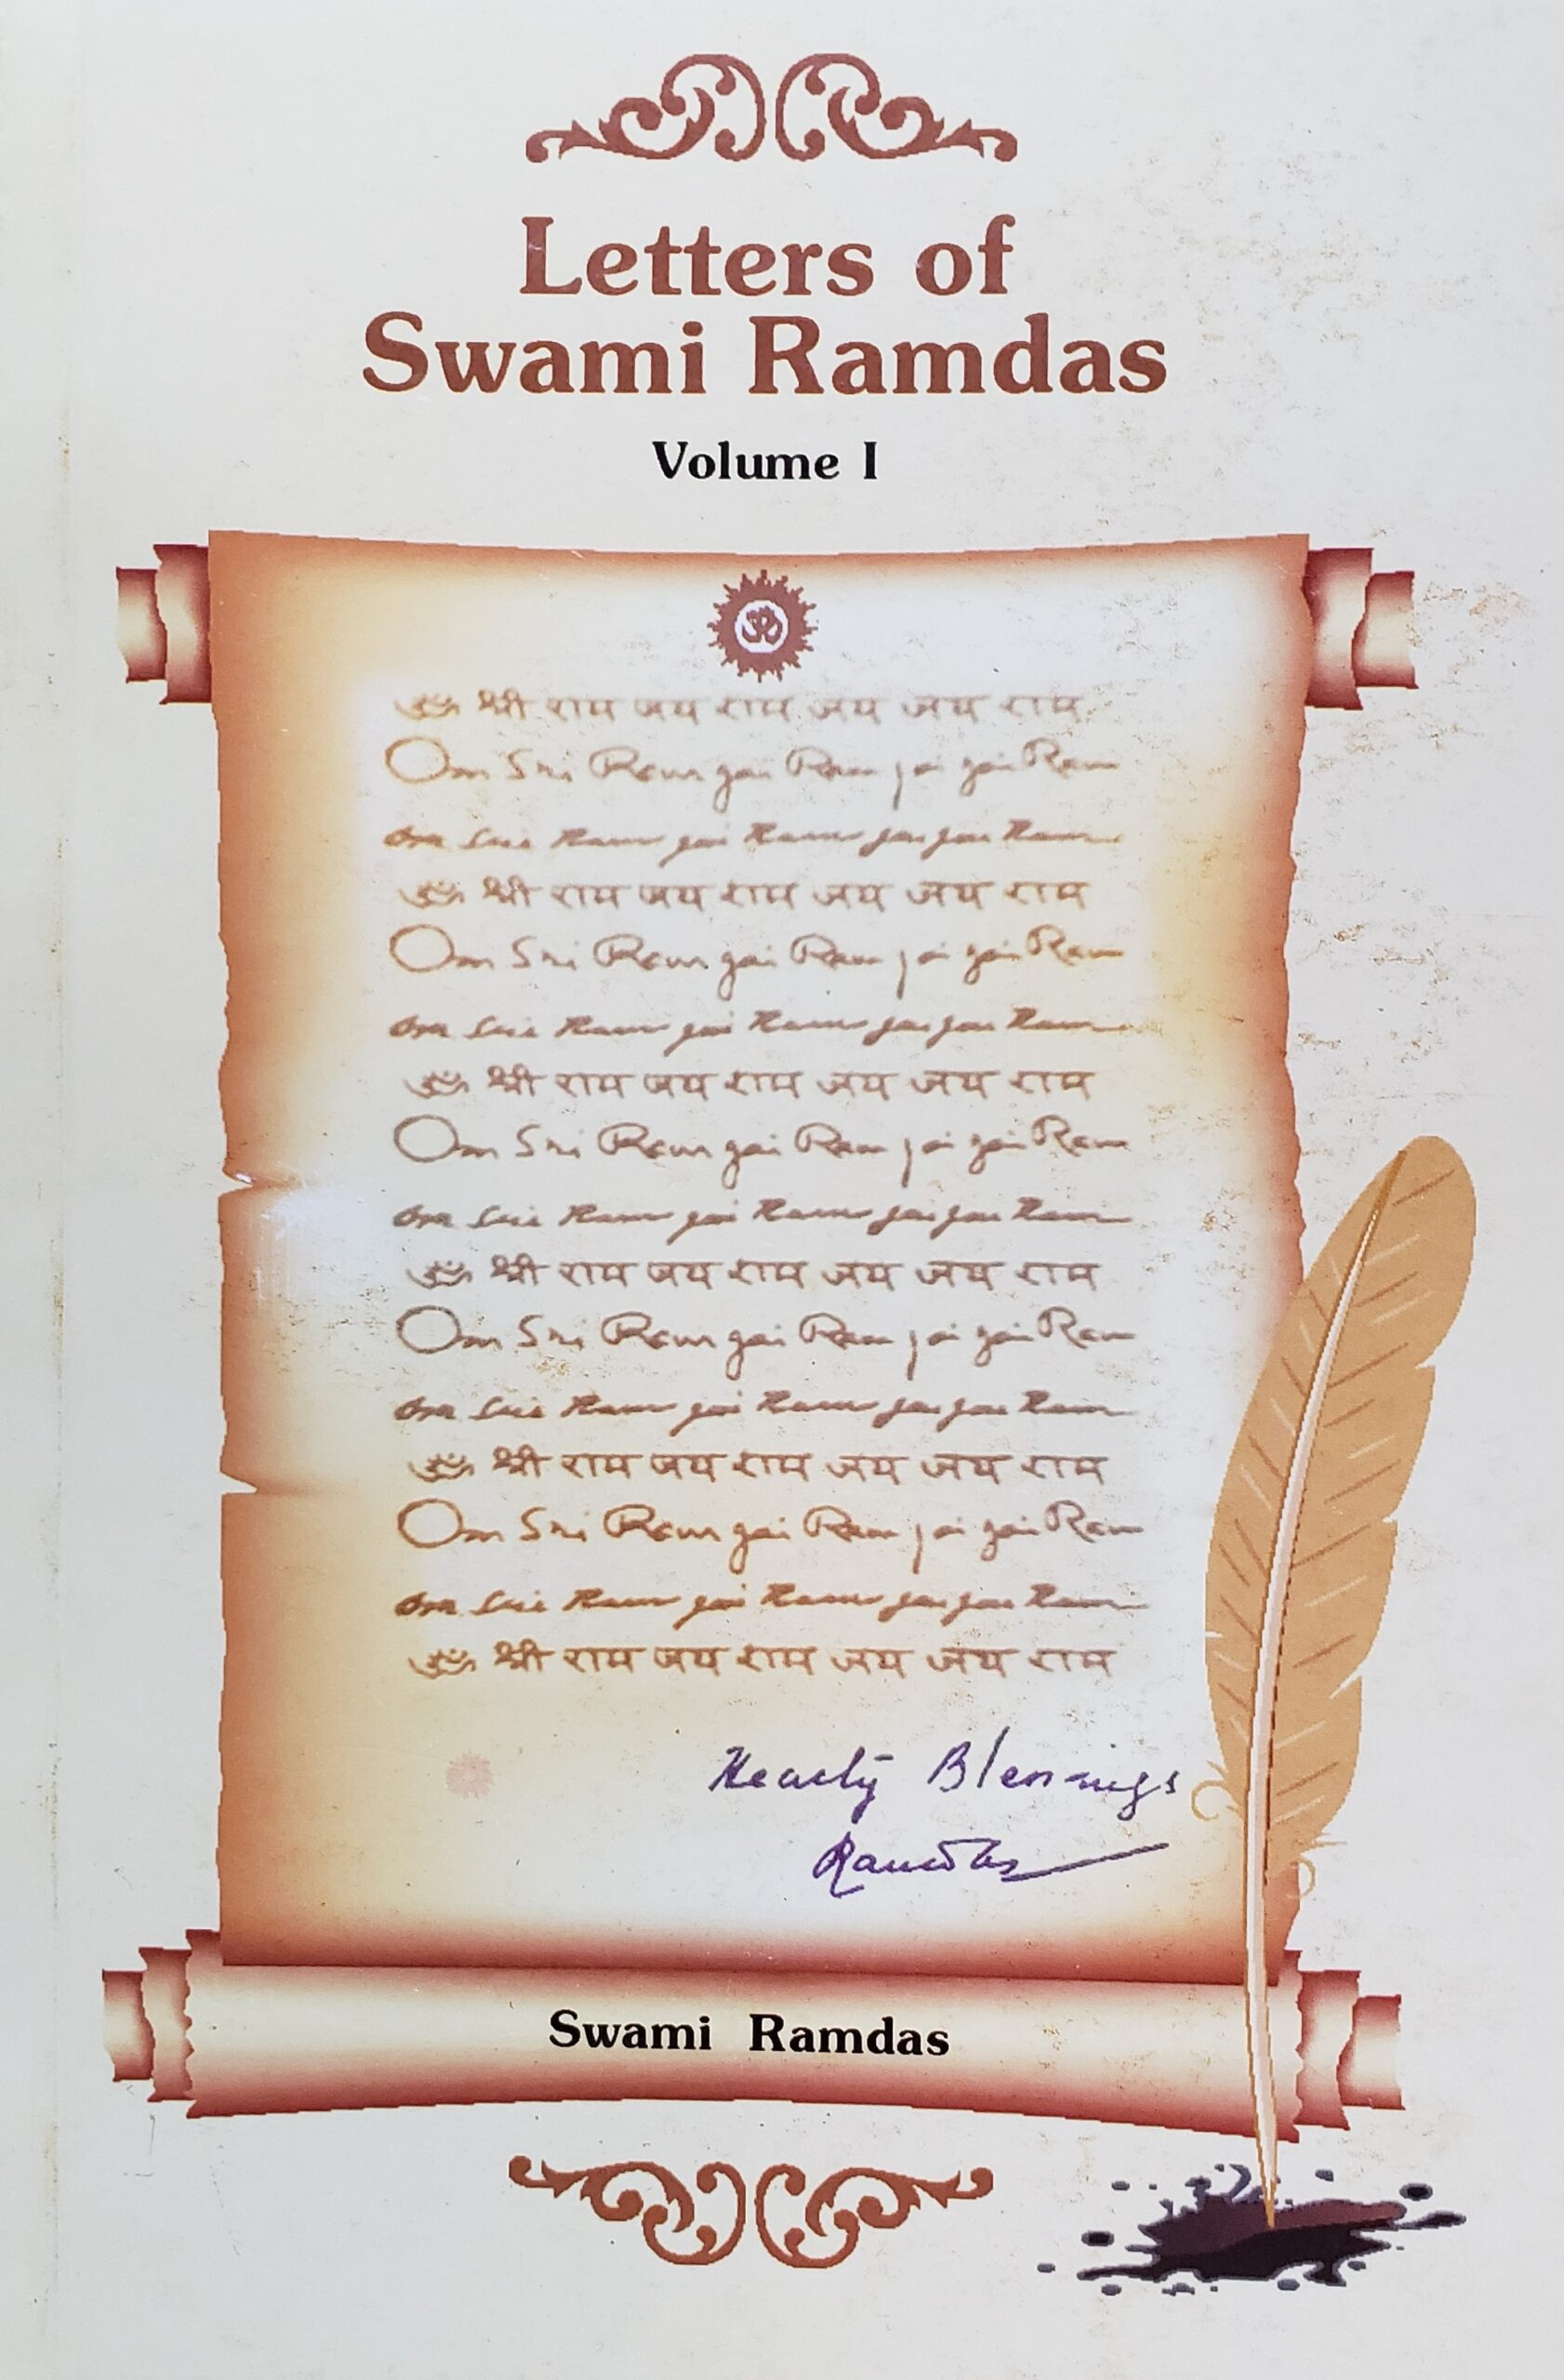 Letters of
Swami Ramdas
Volume I
ॐ
ॐ श्री राम जय राम जय जय राम
Om Sri Ram jai Ram jai jai Ram
Om Sri Ram jai Ram jai jai Ram
ॐ श्री राम जय राम जय जय राम
Om Sri Ram jai Ram jai jai Ram
Om Sri Ram jai Ram jai jai Ram
ॐ श्री राम जय राम जय जय राम
Om Sri Ram jai Ram jai jai Ram
Om Sri Ram jai Ram jai jai Ram
ॐ श्री राम जय राम जय जय राम
Om Sri Ram jai Ram jai jai Ram
Om Sri Ram jai Ram jai jai Ram
ॐ श्री राम जय राम जय जय राम
Om Sri Ram jai Ram jai jai Ram
Om Sri Ram jai Ram jai jai Ram
ॐ श्री राम जय राम जय जय राम
Hearty Blessings
Ramdas
Swami Ramdas